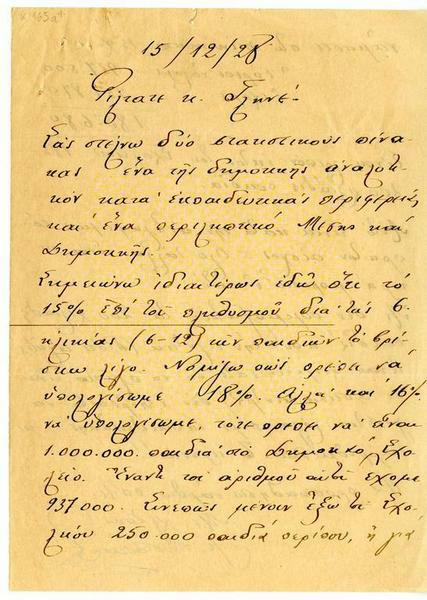 15/12/28
Φίλτατε κ. Γληνέ.
Σας στέλνω δύο στατιστικούς πίνα-
κας ἕνα τῆς δημοτικῆς ἀναλυτι-
κόν κατά ἐκπαιδευτικάς περιφερείας
καί ἕνα περιληπτικό Μέσης καί
Δημοτικῆς.
Σημειώνω ἰδιαιτέρως ἐδῶ ὅτι τό
15% ἐπί τοῦ πληθυσμοῦ διά τάς
ἡλικίας (6-12) τῶν παιδιῶν τό βρί-
σκω λίγο. Νομίζω πώς πρέπει νά
ὑπολογίσωμε 18%. Ἀλλά καί 16%
νά ὑπολογίσωμε, τότε πρέπει νά εἶναι
1.000.000. παιδιά στό Δημοτικό Σχο-
λεῖο. Ἔναντι τοῦ ἀριθμοῦ αὐτοῦ ἔχομε
937000. Συνεπῶς μένουν ἔξω τοῦ Σχο-
λείου 250.000 παιδιά περίπου, ἤ γιά